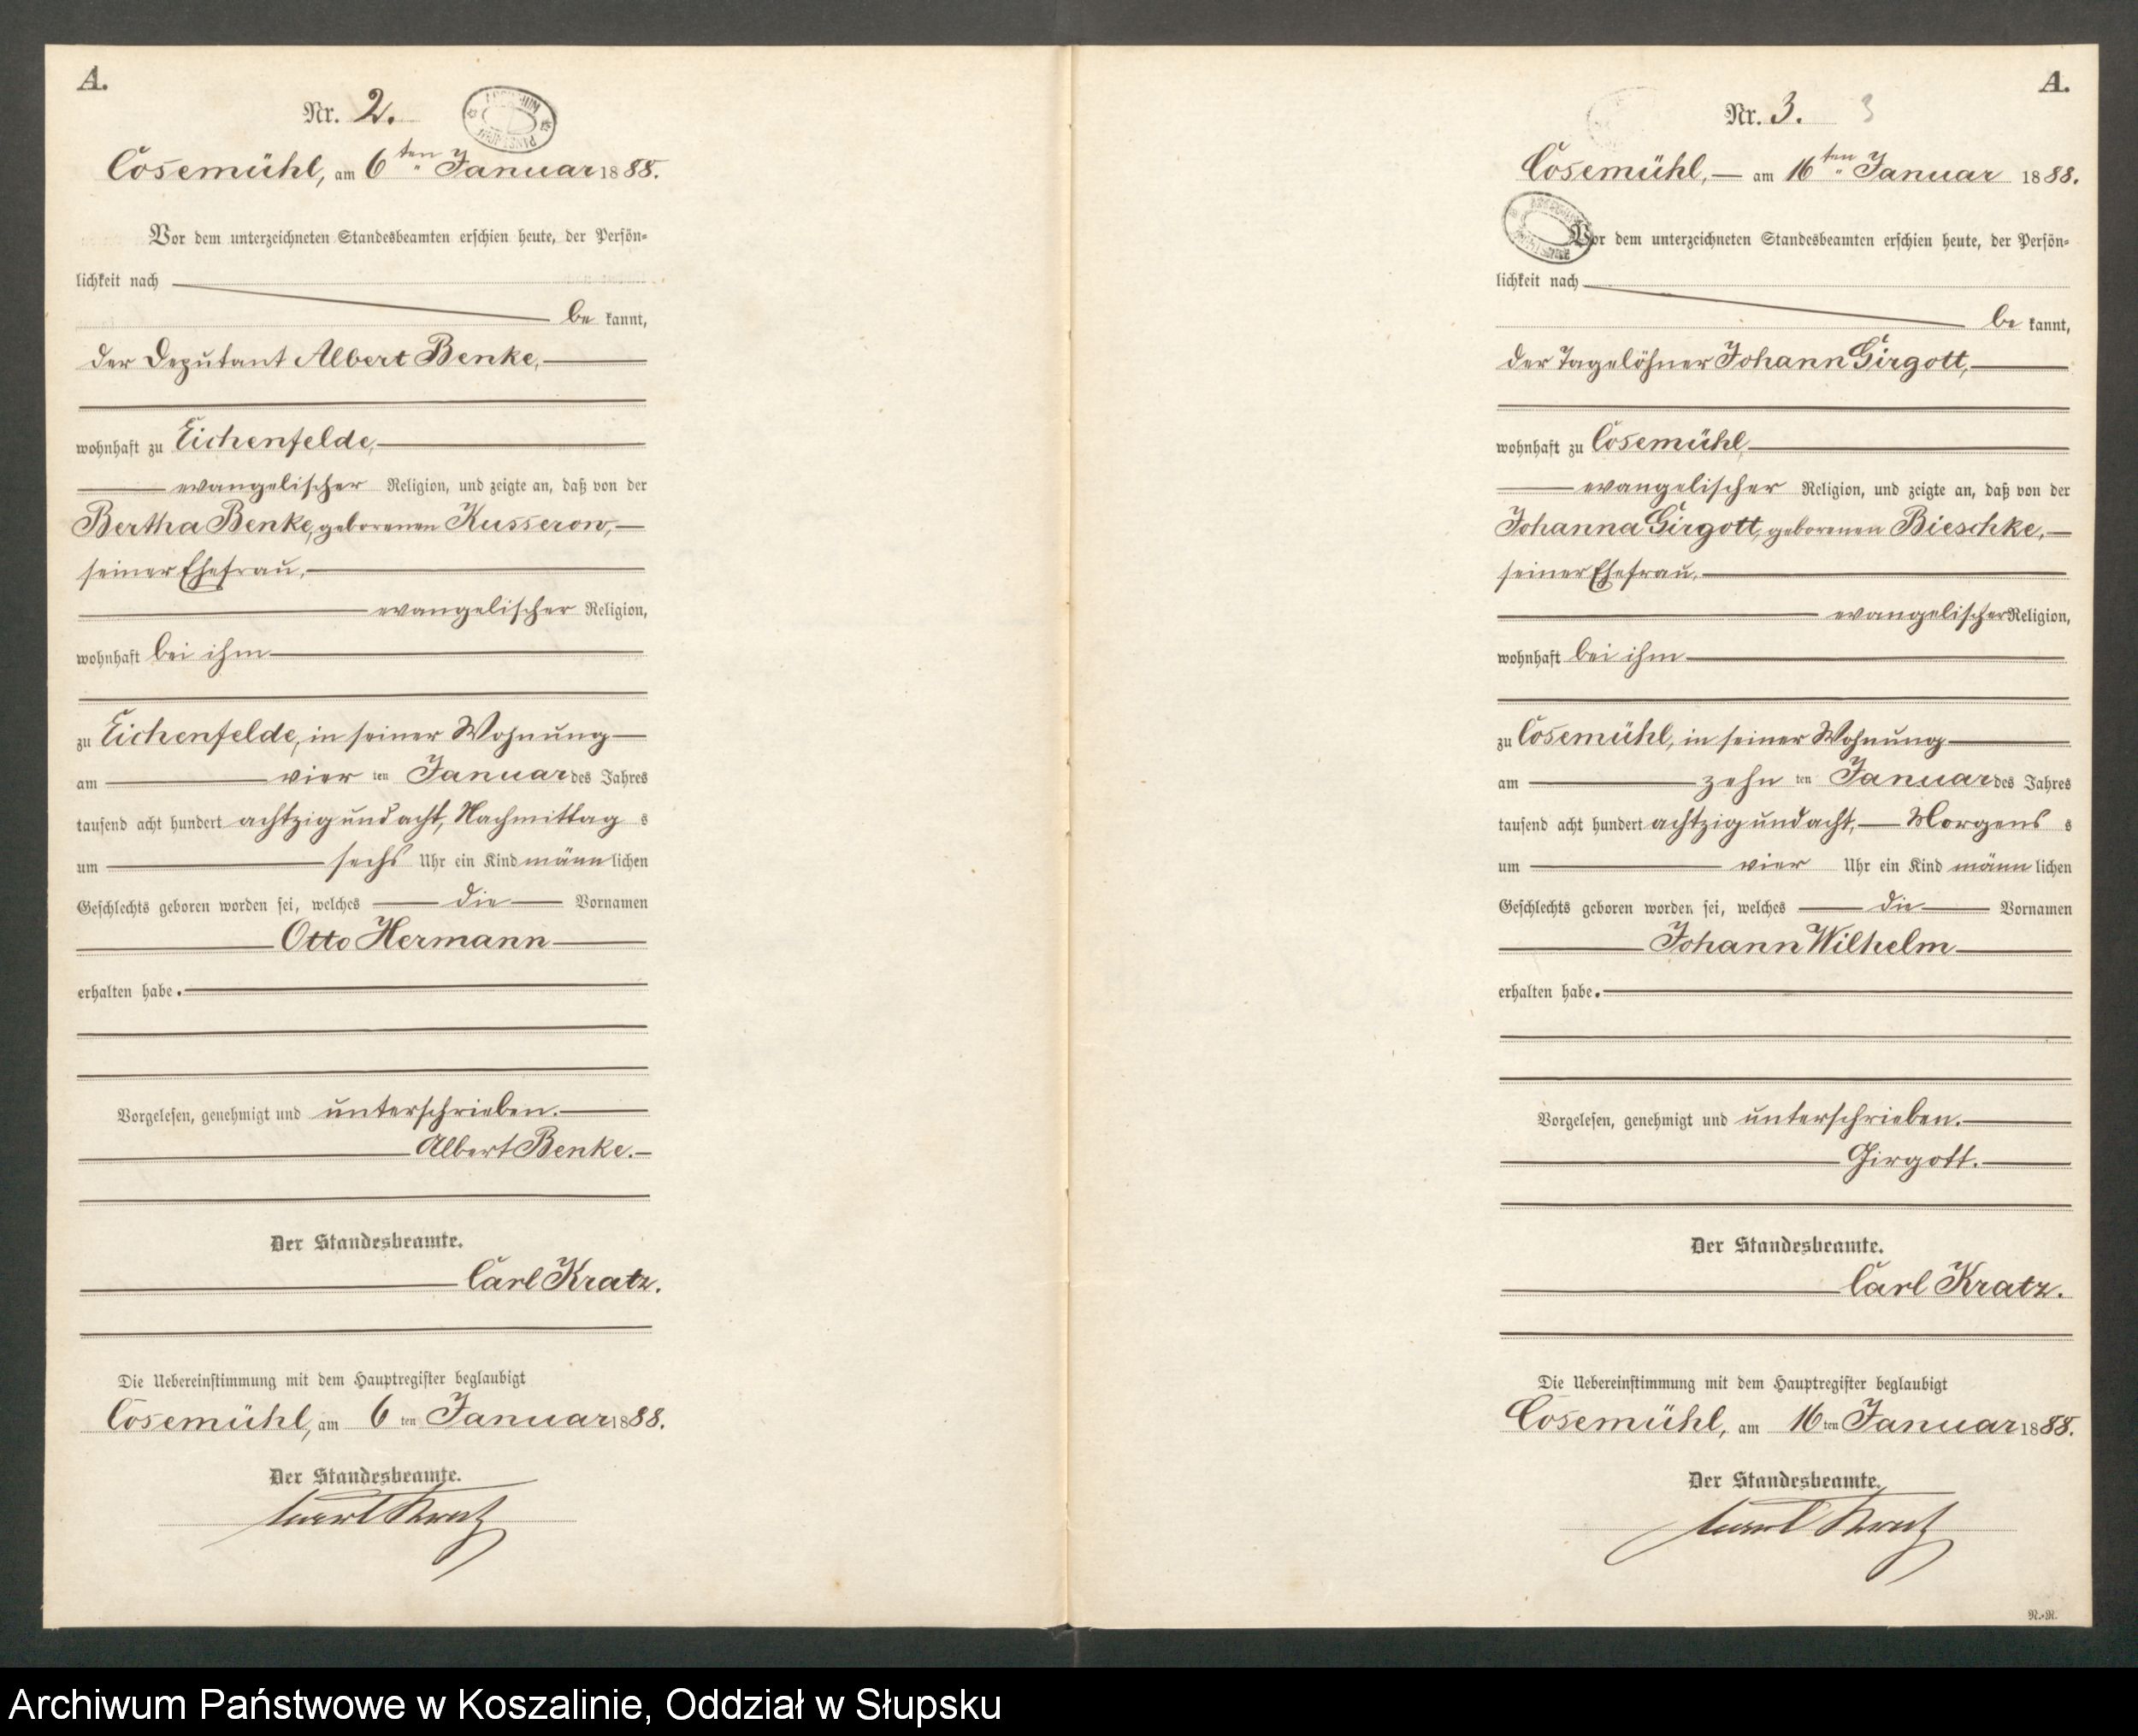 A.
Nr. 2.
Cosemühl, am 6ten Januar 1888.
Vor dem unterzeichneten Standesbeamten erschien heute, der Persön-
lichkeit nach
be kannt,
der Deputant Albert Benke,
wohnhaft zu Eichenfelde,
evangelischer Religion, und zeigte an, daß von der
Bertha Benke, geborenen Kusserow,
seiner Ehefrau,
evangelischer Religion,
wohnhaft bei ihm
zu Eichenfelde, in seiner Wohnung
am vier ten Januar des Jahres
tausend acht hundert achtzig und acht, Nachmittag s
um sechs Uhr ein Kind männ lichen
Geschlechts geboren worden sei, welches die Vornamen
Otto Hermann
erhalten habe.
Vorgelesen, genehmigt und unterschrieben.
Albert Benke.
Der Standesbeamte.
Carl Kratz.
Die Uebereinstimmung mit dem Hauptregister beglaubigt
Cosemühl, am 6 ten Januar 1888.
Der Standesbeamte.
Carl Kratz
A.
Nr. 3. 3
Cosemühl, am 16ten Januar 1888.
Vor dem unterzeichneten Standesbeamten erschien heute, der Persön-
lichkeit nach
be kannt,
der Tagelöhner Johann Girgott,
wohnhaft zu Cosemühl,
evangelischer Religion, und zeigte an, daß von der
Johanna Girgott, geborenen Bieschke,
seiner Ehefrau,
evangelischer Religion,
wohnhaft bei ihm
zu Cosemühl, in seiner Wohnung
am zehn ten Januar des Jahres
tausend acht hundert achtzig und acht, Morgens s
um vier Uhr ein Kind männ lichen
Geschlechts geboren worden sei, welches die Vornamen
Johann Wilhelm
erhalten habe.
Vorgelesen, genehmigt und unterschrieben.
Girgott.
Der Standesbeamte.
Carl Kratz.
Die Uebereinstimmung mit dem Hauptregister beglaubigt
Cosemühl, am 16 ten Januar 1888.
Der Standesbeamte.
Carl Kratz
N.-N.
Archiwum Państwowe w Koszalinie, Oddział w Słupsku